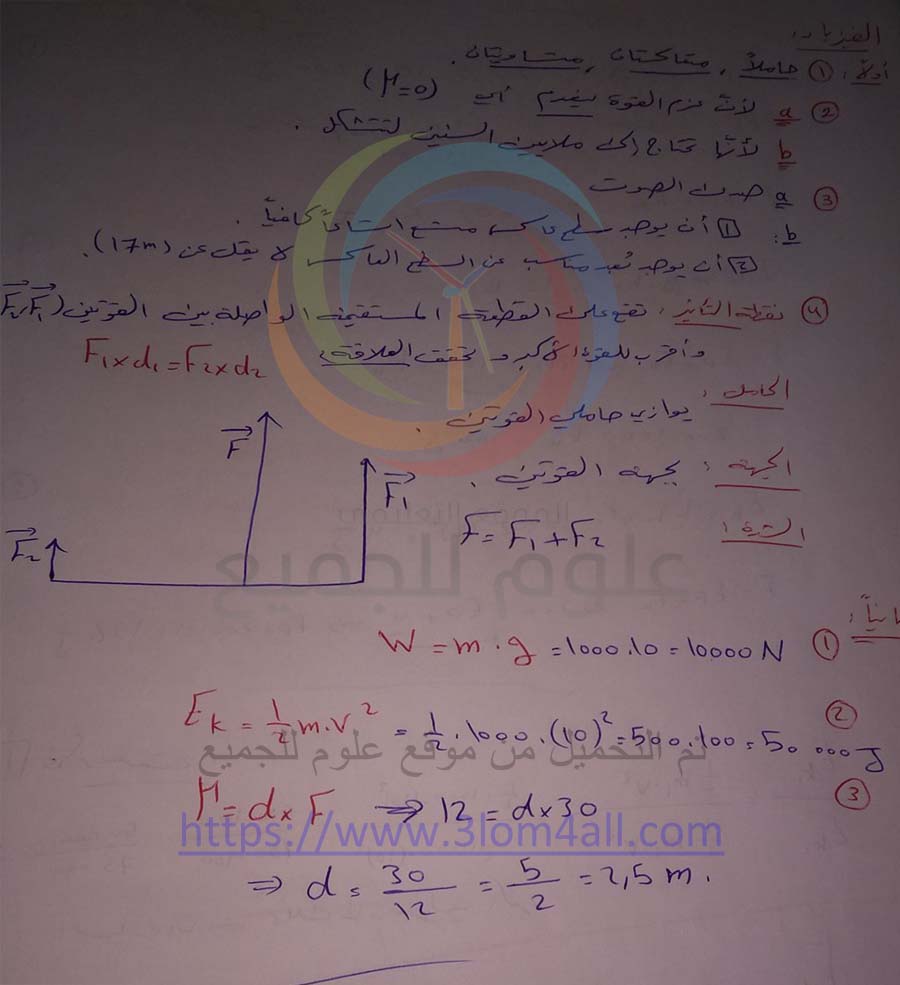 الفيزياء:
أولاً: ① حاملاً, متعاكستان, متساويتان.
② a لأن عزم القوة ينعدم أي (Γ=0)
b لأنها تحتاج إلى ملايين السنين لتتشكل.
③ a صدى الصوت
b: 1 أن يوجد سطح عاكس متسع اتساعاً كافياً.
2 أن يوجد بُعد مناسب عن السطح العاكس لا يقل عن (17m).
④ نقطة التأثير: تقع على القطعة المستقيمة الواصلة بين القوتين (F₂,F₁)
وأقرب للقوة الأكبر وتحقق العلاقة:
F₁ x d₁ = F₂ x d₂
الحامل: يوازي حاملي القوتين.
الجهة: بجهة القوتين.
الشدة: F = F₁ + F₂
F
F₁
F₂
علوم للجميع
ثانياً:
① W = m . g = 1000 . 10 = 10000 N
② Eₖ = 1/2 m.v² = 1/2 . 1000 . (10)² = 500 . 100 = 50 000 J
تم التحميل من موقع علوم للجميع
③ Γ = d x F ⇒ 12 = d x 30
https://www.3lom4all.com
⇒ d = 30/12 = 5/2 = 2,5 m.